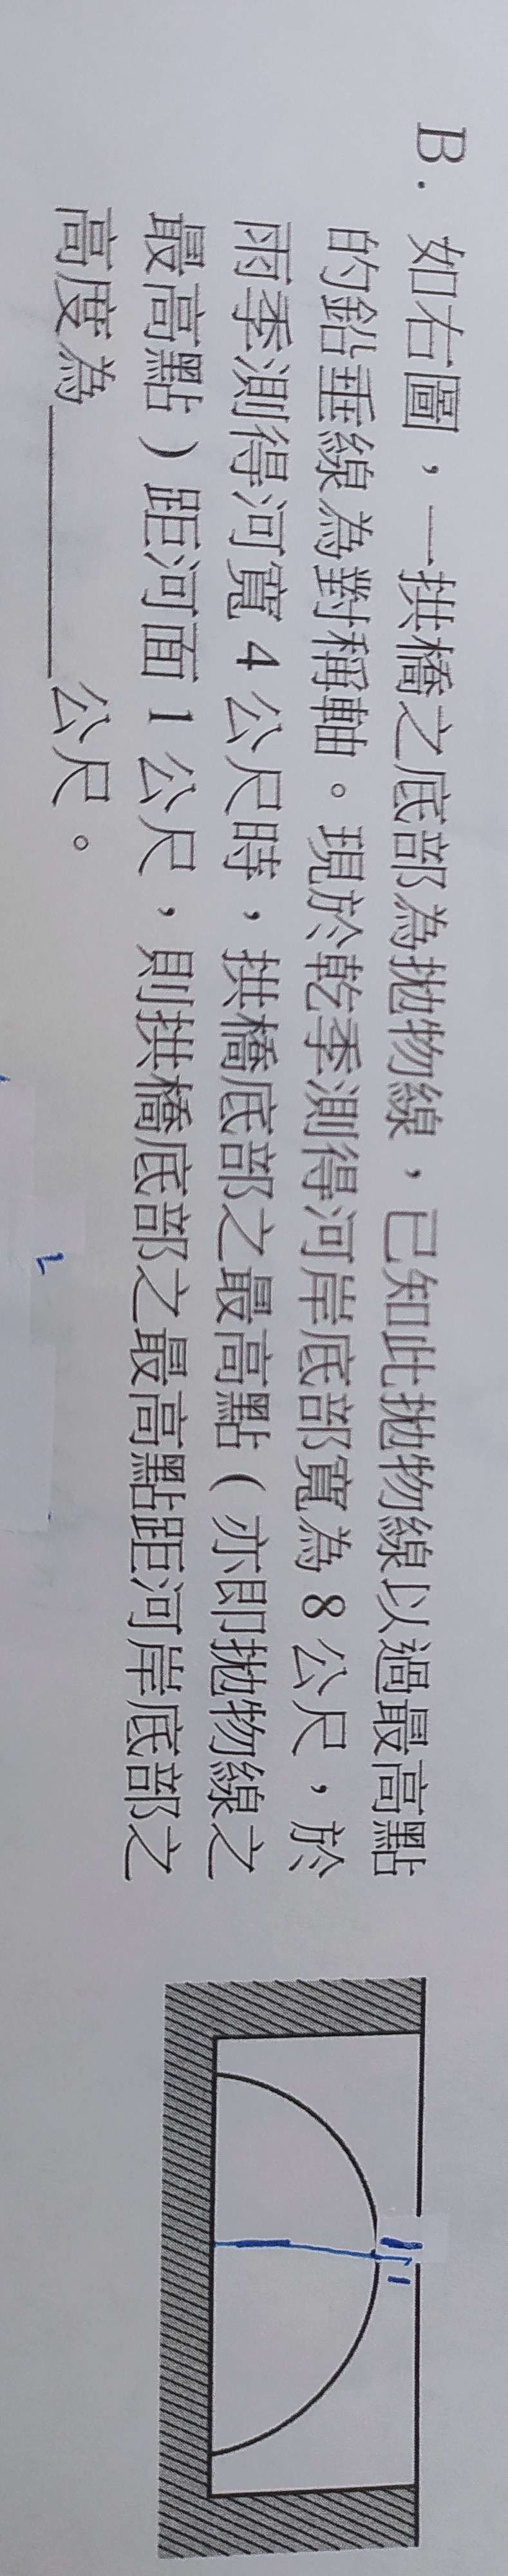 B. 如右圖，一拱橋之底部為拋物線，已知此拋物線以過最高點
的鉛垂線為對稱軸。現於乾季測得河岸底部寬為 8 公尺，於
雨季測得河寬 4 公尺時，拱橋底部之最高點（亦即拋物線之
最高點）距河面 1 公尺，則拱橋底部之最高點距河岸底部之
高度為＿＿＿＿公尺。